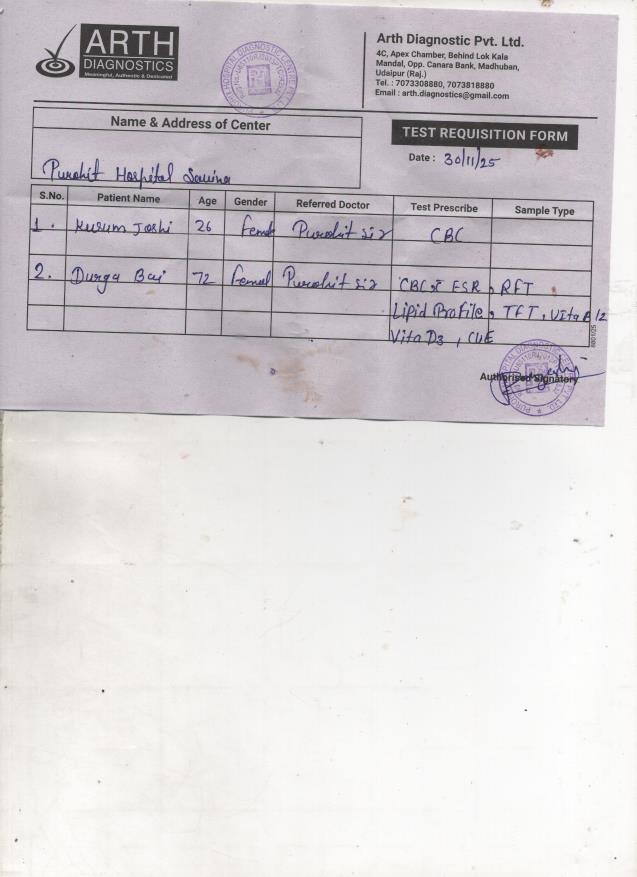 ARTH
DIAGNOSTICS
Meaningful, Authentic & Dedicated
Arth Diagnostic Pvt. Ltd.
4C, Apex Chamber, Behind Lok Kala
Mandal, Opp. Canara Bank, Madhuban,
Udaipur (Raj.)
Tel. : 7073308880, 7073818880
Email : arth.diagnostics@gmail.com
Name & Address of Center
TEST REQUISITION FORM
Purohit Hospital Savina
Date : 30/11/25
S.No. Patient Name Age Gender Referred Doctor Test Prescribe Sample Type
1. Kusum Joshi 26 Femal Purohit sir CBC
2. Durga Bai 72 Femal Purohit sir CBC ESR, RFT
Lipid Profile, TFT, Vita B12
Vita D3, CUE
Authorised Signatory